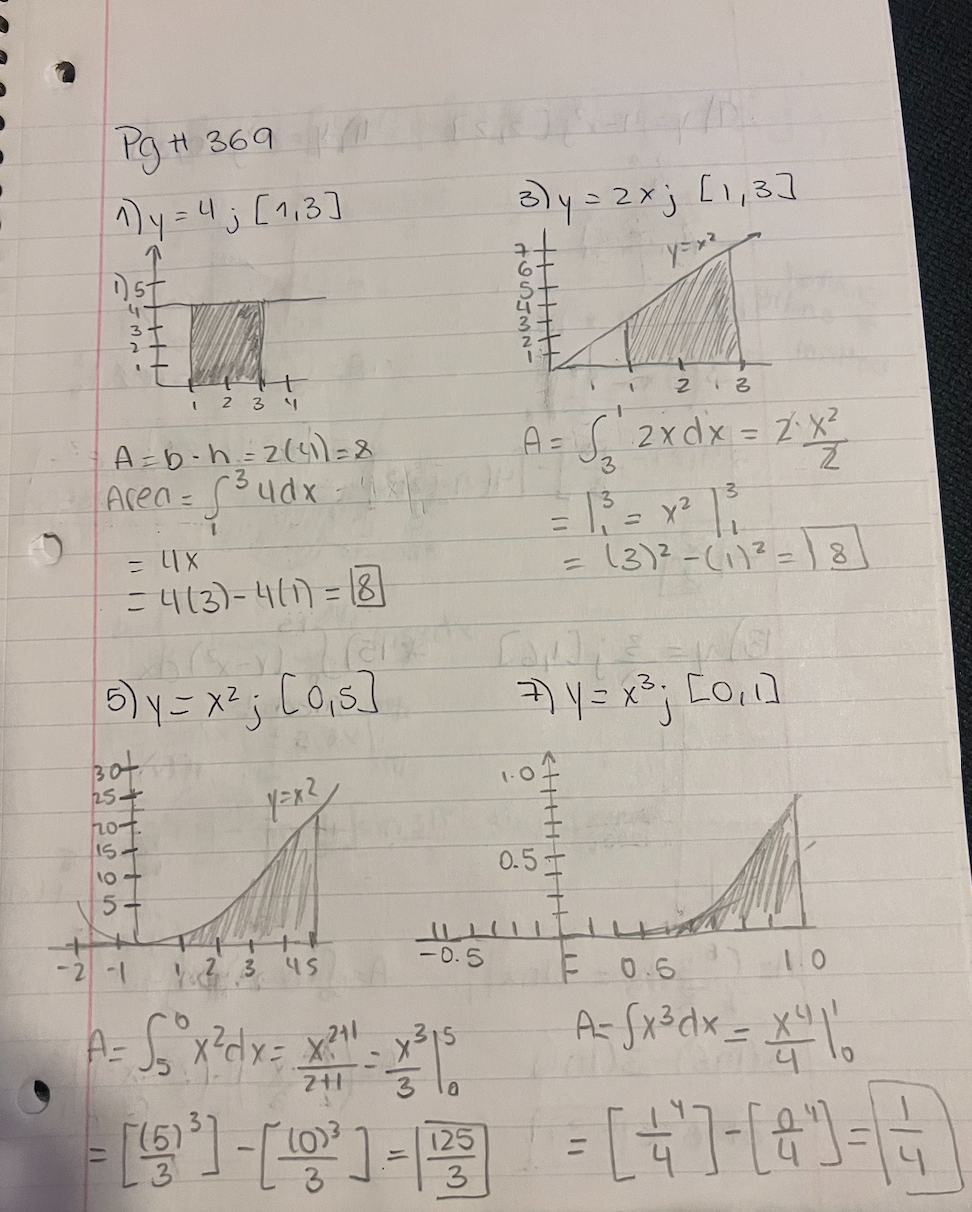 Pg # 369
1) y = 4 ; [1,3]
1) 5
4
3
2
1
1 2 3 4
A = b · h = 2(4) = 8
Area = ∫₁³ 4dx
= 4x
= 4(3) - 4(1) = 8
3) y = 2x ; [1,3]
y = x²
7
6
5
4
3
2
1
1 2 3
A = ∫₃¹ 2x dx = 2 · x²/2
= |₁³ = x² |₁³
= (3)² - (1)² = 8
5) y = x² ; [0,5]
y = x²
30
25
20
15
10
5
-2 -1 1 2 3 4 5
A = ∫₅⁰ x² dx = x²⁺¹/2+1 = x³/3 |₀⁵
= [(5)³/3] - [(0)³/3] = 125/3
7) y = x³ ; [0,1]
1.0
0.5
-0.5 0.5 1.0
A = ∫x³ dx = x⁴/4 |₀¹
= [1⁴/4] - [0⁴/4] = 1/4